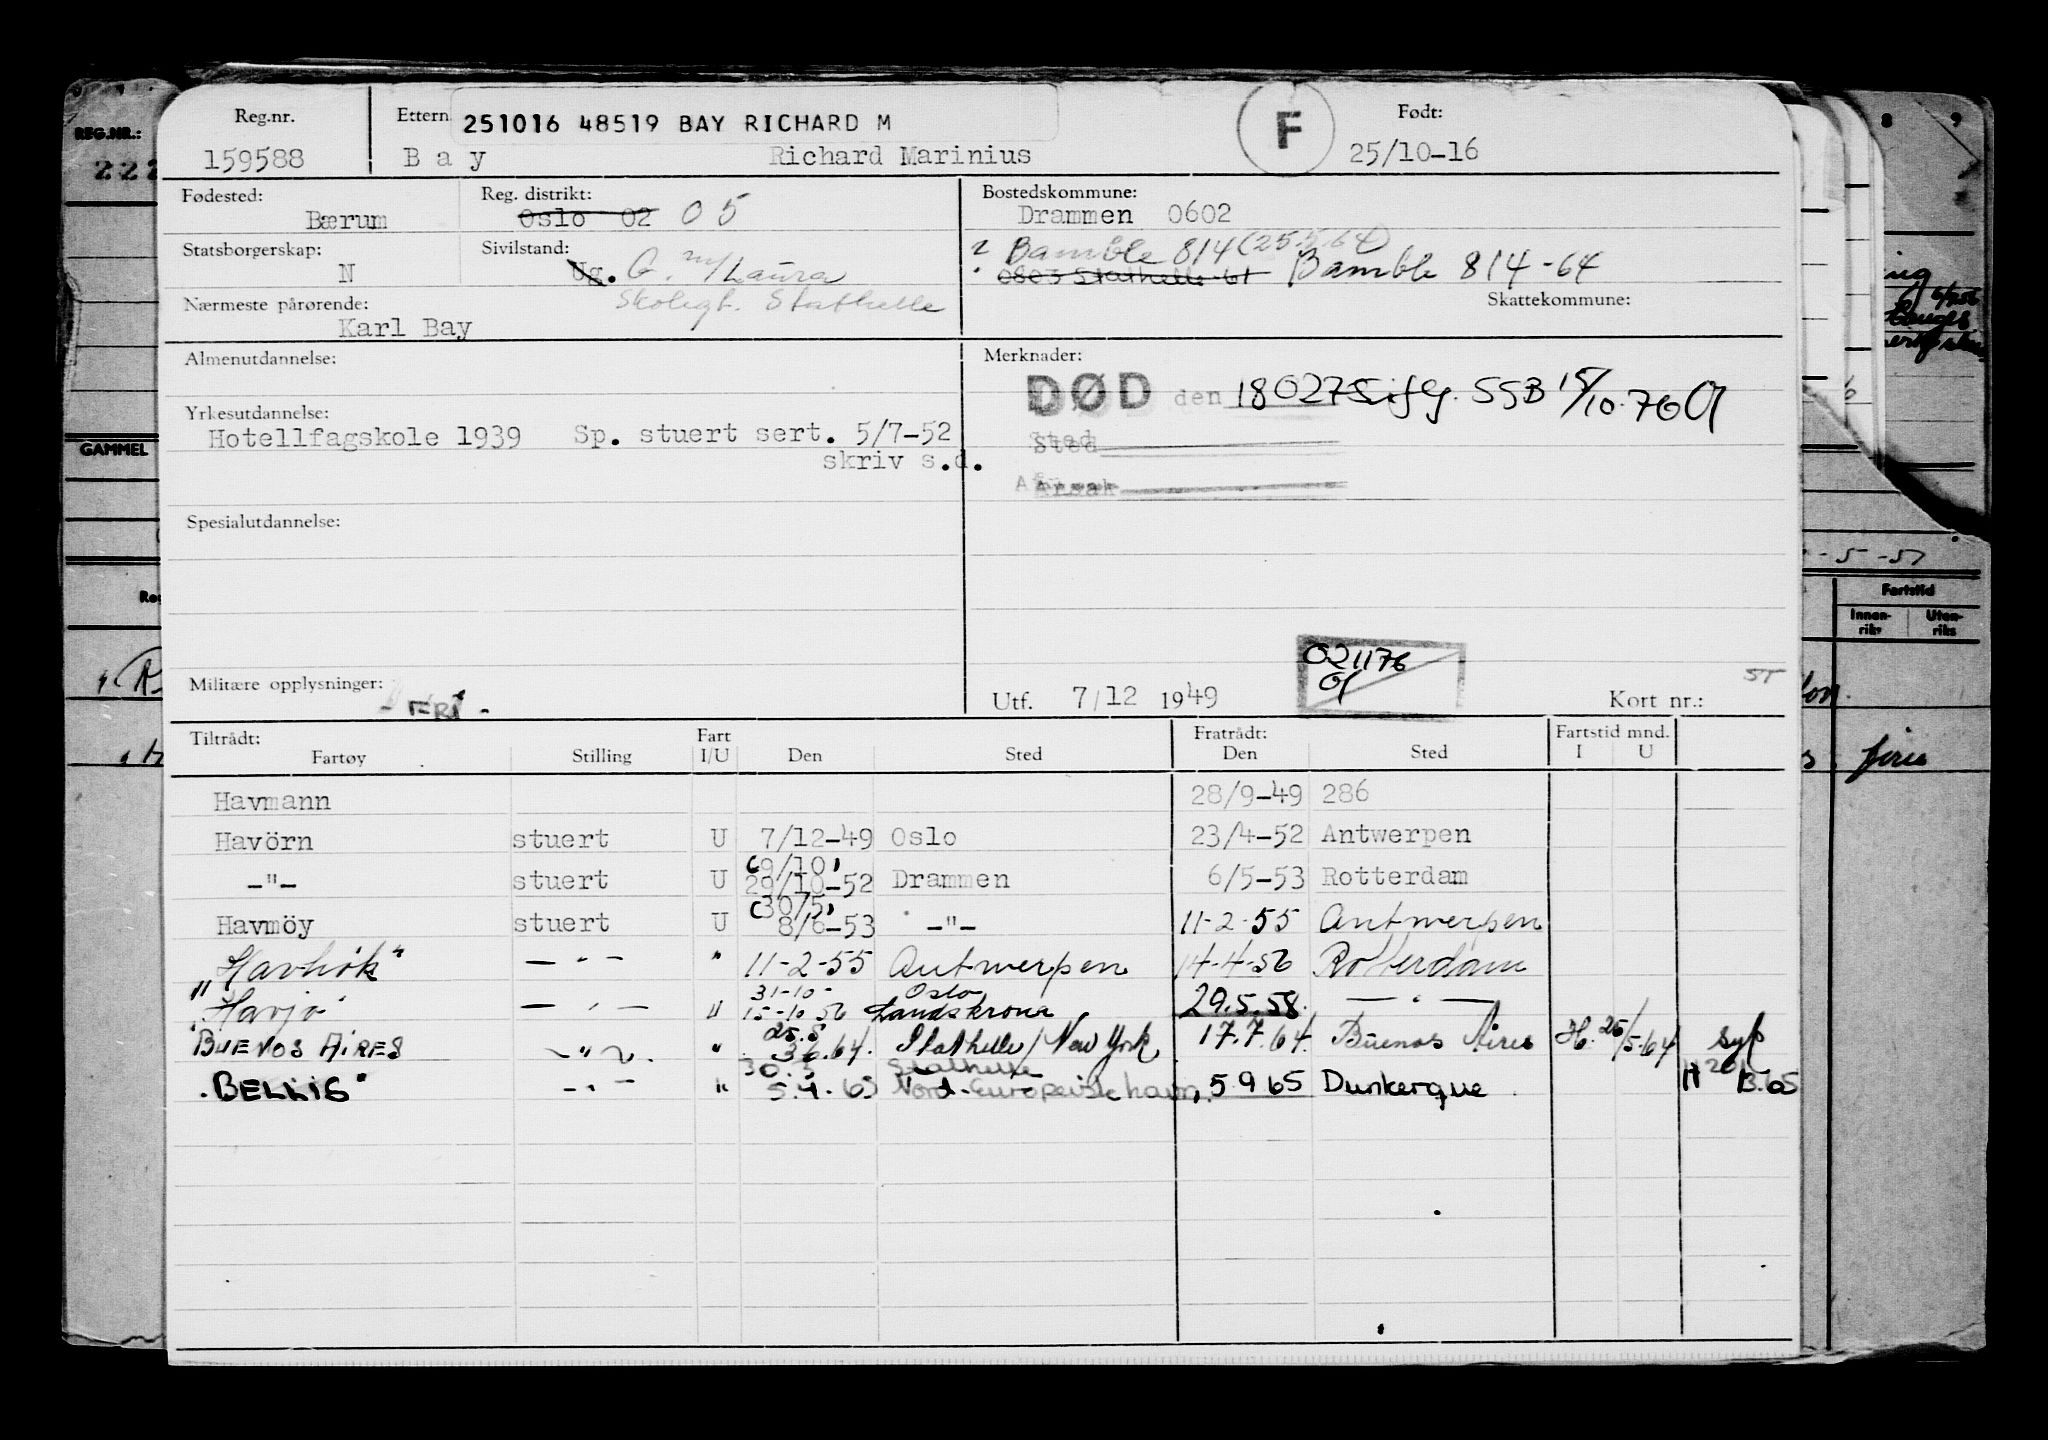 Reg.nr. Ettern 251016 48519 BAY RICHARD M F Født:
159588 Bay Richard Marinius 25/10-16
Fødested: Reg. distrikt: Bostedskommune:
Bærum Oslo 02 05 Drammen 0602
Statsborgerskap: Sivilstand: 2 Bamble 814 (25.5.64)
N Ug. G. m/Laura 0803 Stathelle-61 Bamble 814-64
Nærmeste pårørende: Skoligt. Stathelle Skattekommune:
Karl Bay
Almenutdannelse: Merknader:
DØD den 180275 iflg. SSB 15/10.76
Yrkesutdannelse:
Hotellfagskole 1939 Sp. stuert sert. 5/7-52 Sted
skriv s.d.
Årsak
Spesialutdannelse:
021176
Militære opplysninger: Utf. 7/12 1949 Kort nr.: ST
-FRI-
Tiltrådt: Fart Fratrådt: Fartstid mnd.
Fartøy Stilling I/U Den Sted Den Sted I U
Havmann 28/9-49 286
Havörn stuert U 7/12-49 Oslo 23/4-52 Antwerpen
(9/10)
-"- stuert U 29/10-52 Drammen 6/5-53 Rotterdam
(30/5)
Havmöy stuert U 8/6-53 -"- 11-2-55 Antwerpen
"Havhök" -"- " 11-2-55 Antwerpen 14-4-56 Rotterdam
31-10- Oslo
"Havjo" -"- " 15-10 56 Landskrona 29.5.58. -"-
25.5
BUENOS AIRES -"- " 3.6.64. Stathelle/New York 17.7.64. Buenos Aires H. 26/5-64 syk
30.3 Stathelle
"BELLIS" -"- " 5.4.65 Nord-Europeisk havn, 5.9 65 Dunkerque
REG.NR.:
222
GAMMEL
8 9
-5-57
Fartstid
Innen-riks Uten-riks